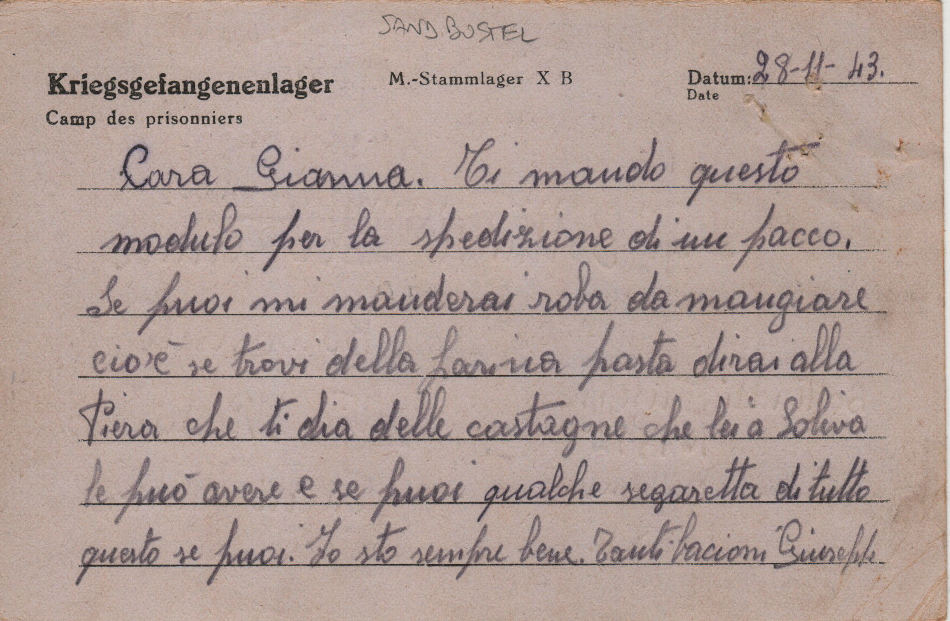 SAND.BOSTEL
Kriegsgefangenenlager M.-Stammlager X B Datum: 28-11-43.
Camp des prisonniers Date
Cara Gianna. Ti mando questo
modulo per la spedizione di un pacco.
Se puoi mi manderai roba da mangiare
cio'è se trovi della farina pasta dirai alla
Piera che ti dia delle castagne che lei a Soliva
le può avere e se puoi qualche segaretta di tutto
questo se puoi. Io sto sempre bene. Tanti bacioni Giuseppe